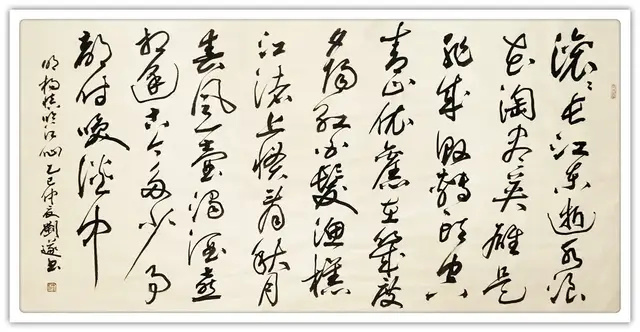 滚〻长江东逝水浪
花淘尽英雄是
非成败转头空
青山依舊在幾度
夕陽紅白髮漁樵
江渚上惯看秋月
春風一壶濁酒喜
相逢古今多少事
都付笑谈中
明楊慎临江仙乙巳仲夏劉书